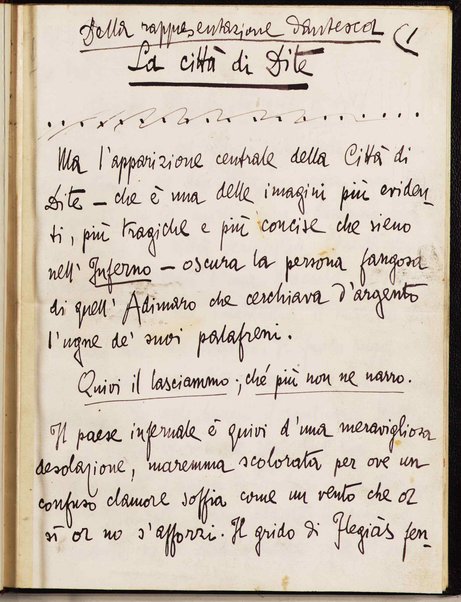 Della rappresentazione dantesca (1
La città di Dite
Ma l'apparizione centrale della Città di
Dite – che è una delle imagini più eviden-
ti, più tragiche e più concise che sieno
nell' Inferno – oscura la persona fangosa
di quell' Adimaro che cerchiava d'argento
l'ugne de' suoi palafreni.
Quivi il lasciammo; ché più non ne narro.
Il paese infernale è quivi d'una meravigliosa
desolazione, maremma scolorata per ove un
confuso clamore soffia come un vento che or
sì or no s'afforzi. Il grido di Flegiàs fen-